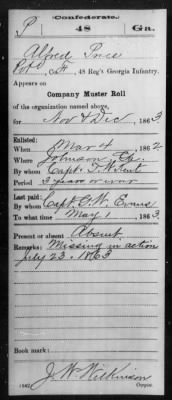 Confederate.
P 48 Ga.
Alfred Price
Pvt Co. F, 48 Reg't Georgia Infantry.
Appears on
Company Muster Roll
of the organization named above,
for Nov & Dec, 1863
Enlisted:
When Mar 4, 1862
Where
By whom Capt. T.
Period 3 years or war
Last paid:
By whom Capt G. W. Evans
To what time May 1, 1863
Present or absent Absent
Remarks: Missing in action
July 23. 1863
Book mark:
J. W. Wilkinson
Copyist.